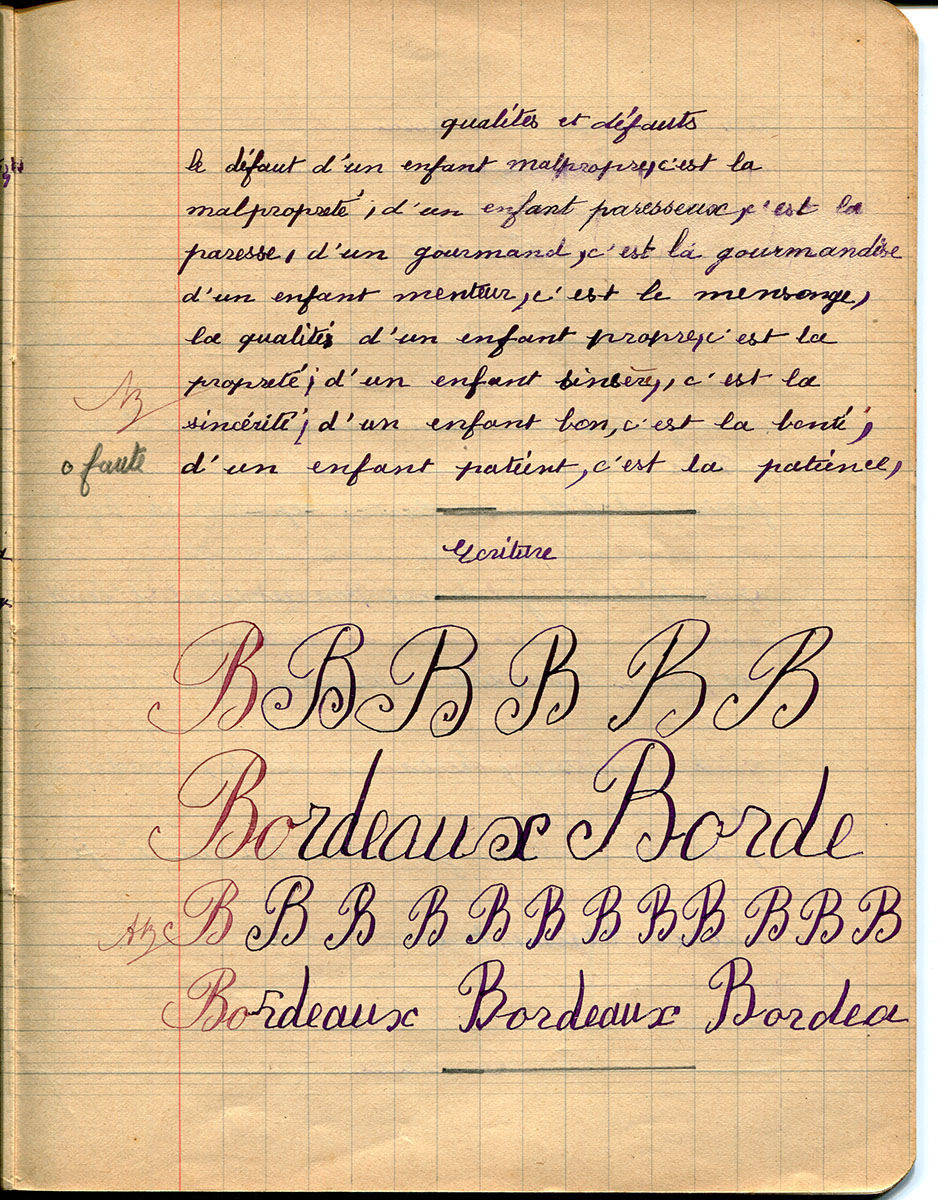 qualités et défauts
le défaut d'un enfant malpropre, c'est la
malpropreté, d'un enfant paresseux, c'est la
paresse, d'un gourmand, c'est la gourmandise
d'un enfant menteur, c'est le mensonge,
la qualités d'un enfant propre, c'est la
propreté; d'un enfant sincère, c'est la
sincérité; d'un enfant bon, c'est la bonté,
0 faute d'un enfant patient, c'est la patience,
Ecriture
B B B B B B
Bordeaux Borde
B B B B B B B B B B B B
Bordeaux Bordeaux Bordea